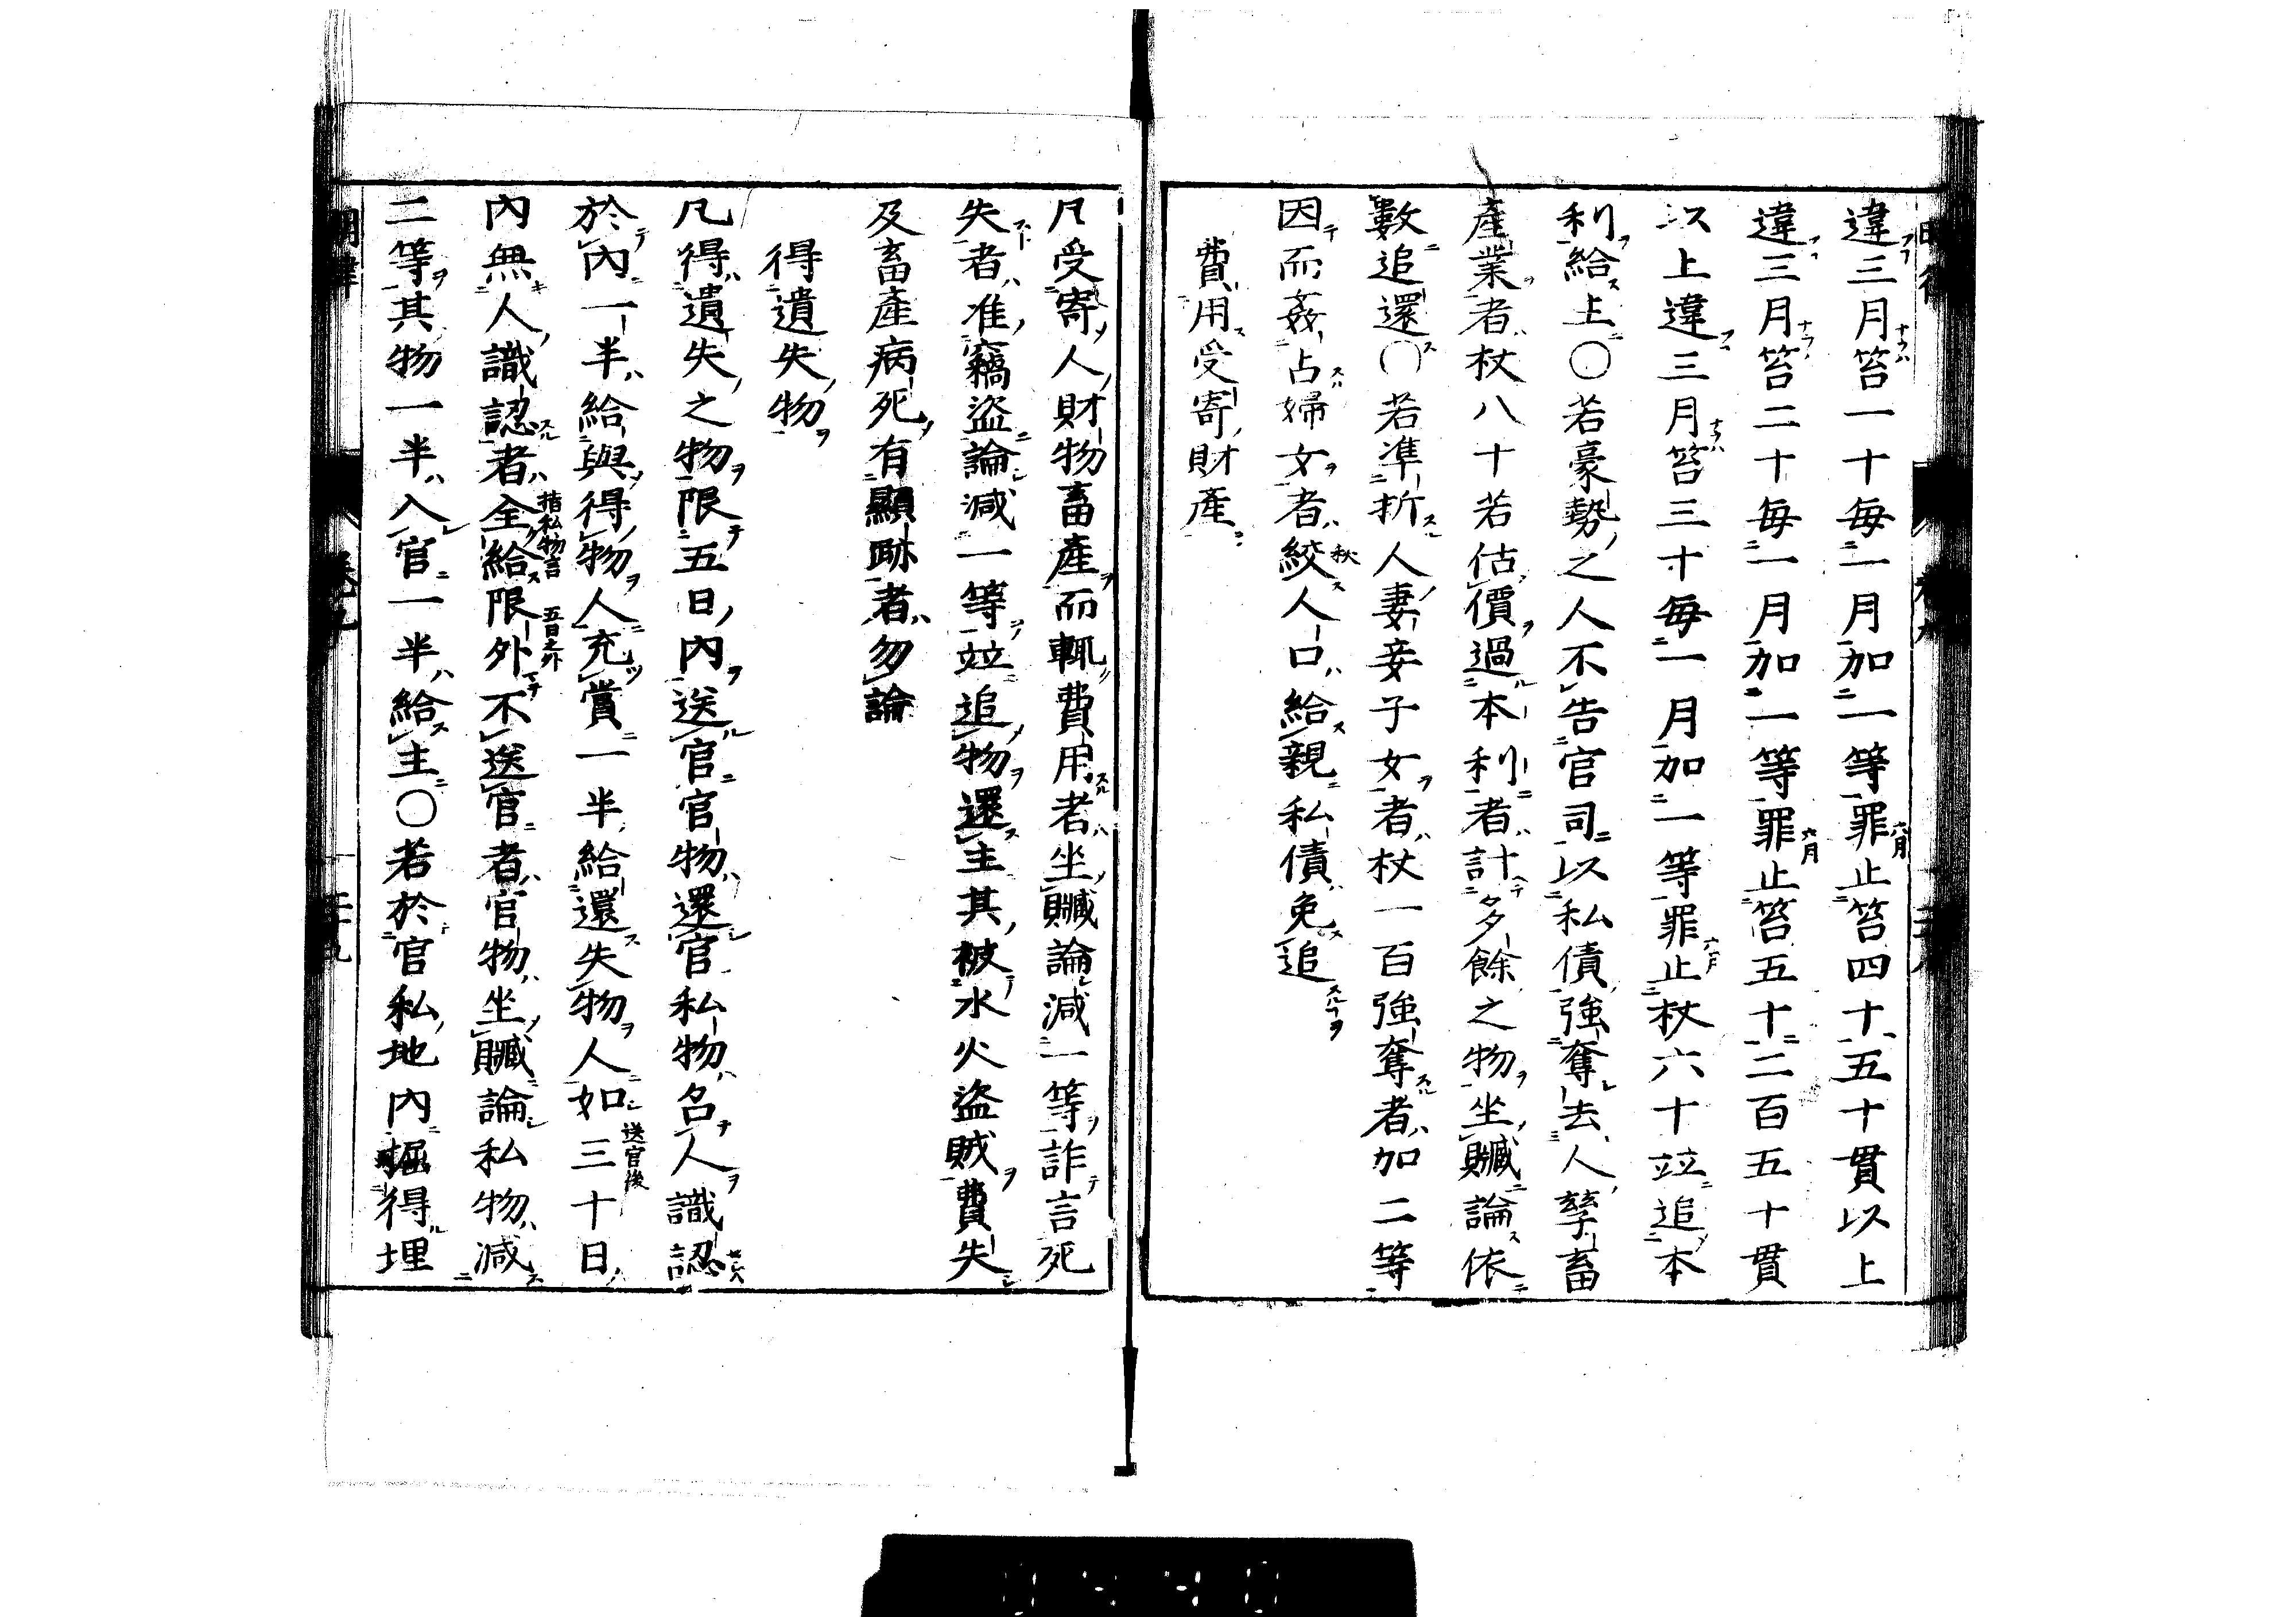 違三月笞一十毎一月加一等罪止笞四十五十貫以上
違三月笞二十毎一月加一等罪止笞五十二百五十貫
以上違三月笞三十毎一月加一等罪止杖六十竝追本
利給主○若豪勢之人不告官司以私債強奪去人孳畜
產業者杖八十若估價過本利者計多餘之物坐贓論依
數追還○若準折人妻妾子女者杖一百強奪者加二等
因而姦占婦女者絞人口給親私債免追
費用受寄財產
凡受寄人財物畜產而輒費用者坐贓論減一等詐言死
失者准竊盜論減一等竝追物還主其被水火盜賊費失
及畜產病死有顯跡者勿論
得遺失物
凡得遺失之物限五日內送官官物還官私物召人識認
於內一半給與得物人充賞一半給還失物人如送官後三十日
內無人識認者全給指私物言限外五日之外不送官者官物坐贓論私物減
二等其物一半入官一半給主○若於官私地內掘得埋